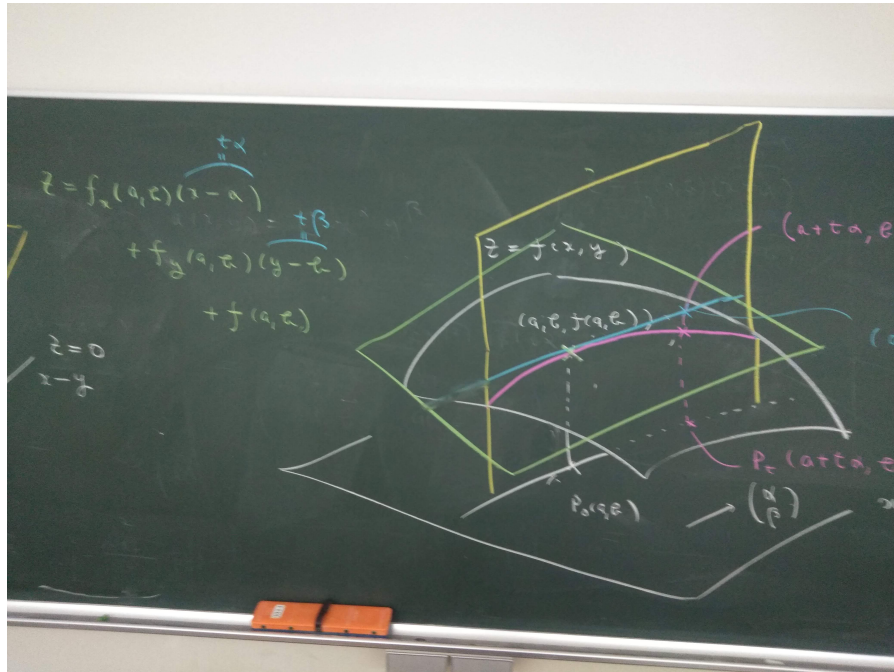 tα
॥
z = f_x(a,b)(x-a)
tβ
॥
+ f_y(a,b)(y-b)
+ f(a,b)
z=0
x-y
z = f(x,y)
(a,b,f(a,b))
(a+tα, b
P_t (a+tα, b
P_0(a,b)
→ (α
β)